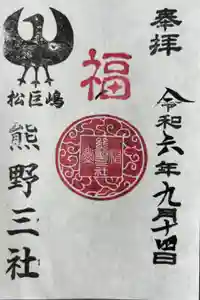 奉拝
令和六年九月十四日
福
松巨嶋
熊野三社